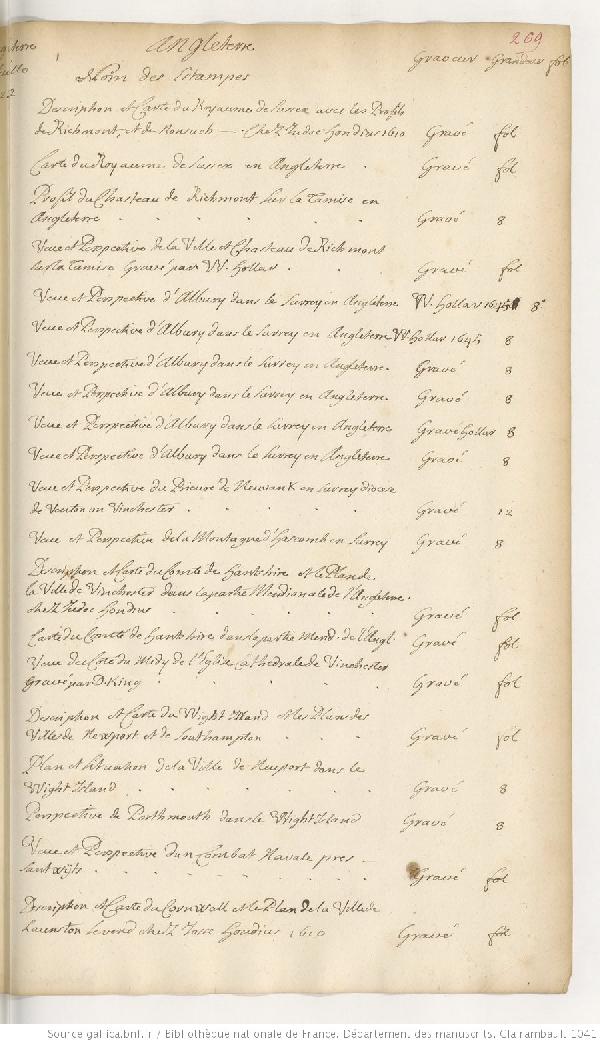 Angleterre 269
Nom des Estampes Graveur Grandeur fol
22
Description et Carte du Royaume de Sussex avec les Profils
de Richmont, et de Nonsuch — Chez Judoc Hondius 1610 Gravé fol
Carte du Royaume de Sussex en Angleterre . Gravé fol
Profil du Chasteau de Richmont sur la Tamise en
Angleterre . . . . . Gravé 8
Veue et Perspective de la Ville et Chasteau de Richmont
sur la Tamise Gravé par W. Hollar . . Gravé fol
Veue et Perspective d'Albury dans le Surrey en Angleterre W. Hollar 1645 8°
Veue et Perspective d'Albury dans le Surrey en Angleterre W Hollar 1645 8
Veue et Perspective d'Albury dans le Surrey en Angleterre Gravé 8
Veue et Perspective d'Albury dans le Surrey en Angleterre Gravé 8
Veue et Perspective d'Albury dans le Surrey en Angleterre Gravé Hollar 8
Veue et Perspective d'Albury dans le Surrey en Angleterre Gravé 8
Veue et Perspective du Prieuré de Newark en Surrey diocese
de Venton ou Vinchester . . . . Gravé 12
Veue et Perspective de la Montagne d'Hascomb en Surrey Gravé 8
Description et Carte du Comté de Hantshire et le Plan de
la Ville de Vinchester dans la partie Meridianale de l'Angleterre.
chez Judoc Hondius . . . . Gravé fol
Carte du Comté de Hantshire dans la partie Merid. de l'Angl. Gravé fol
Veue du Coté du Midy de l'Eglise Cathedrale de Vinchester
Gravé par D. King . . . . Gravé fol
Description et Carte du Wight Island et les Plans des
Villes de Newport et de Southampton . . . Gravé fol
Plan et Situation de la Ville de Newport dans le
Wight Island . . . . . Gravé 8
Perspective de Porthmouth dans le Wight Island Gravé 8
Veue et Perspective d'un Combat Navale pres
. . . . . Gravé fol
Description et Carte du Cornwall et le Plan de la Ville de
Launston se vend chez Hondius 1610 Gravé fol
Source gallica.bnf.fr / Bibliothèque nationale de France. Département des manuscrits. Clairambault 1041